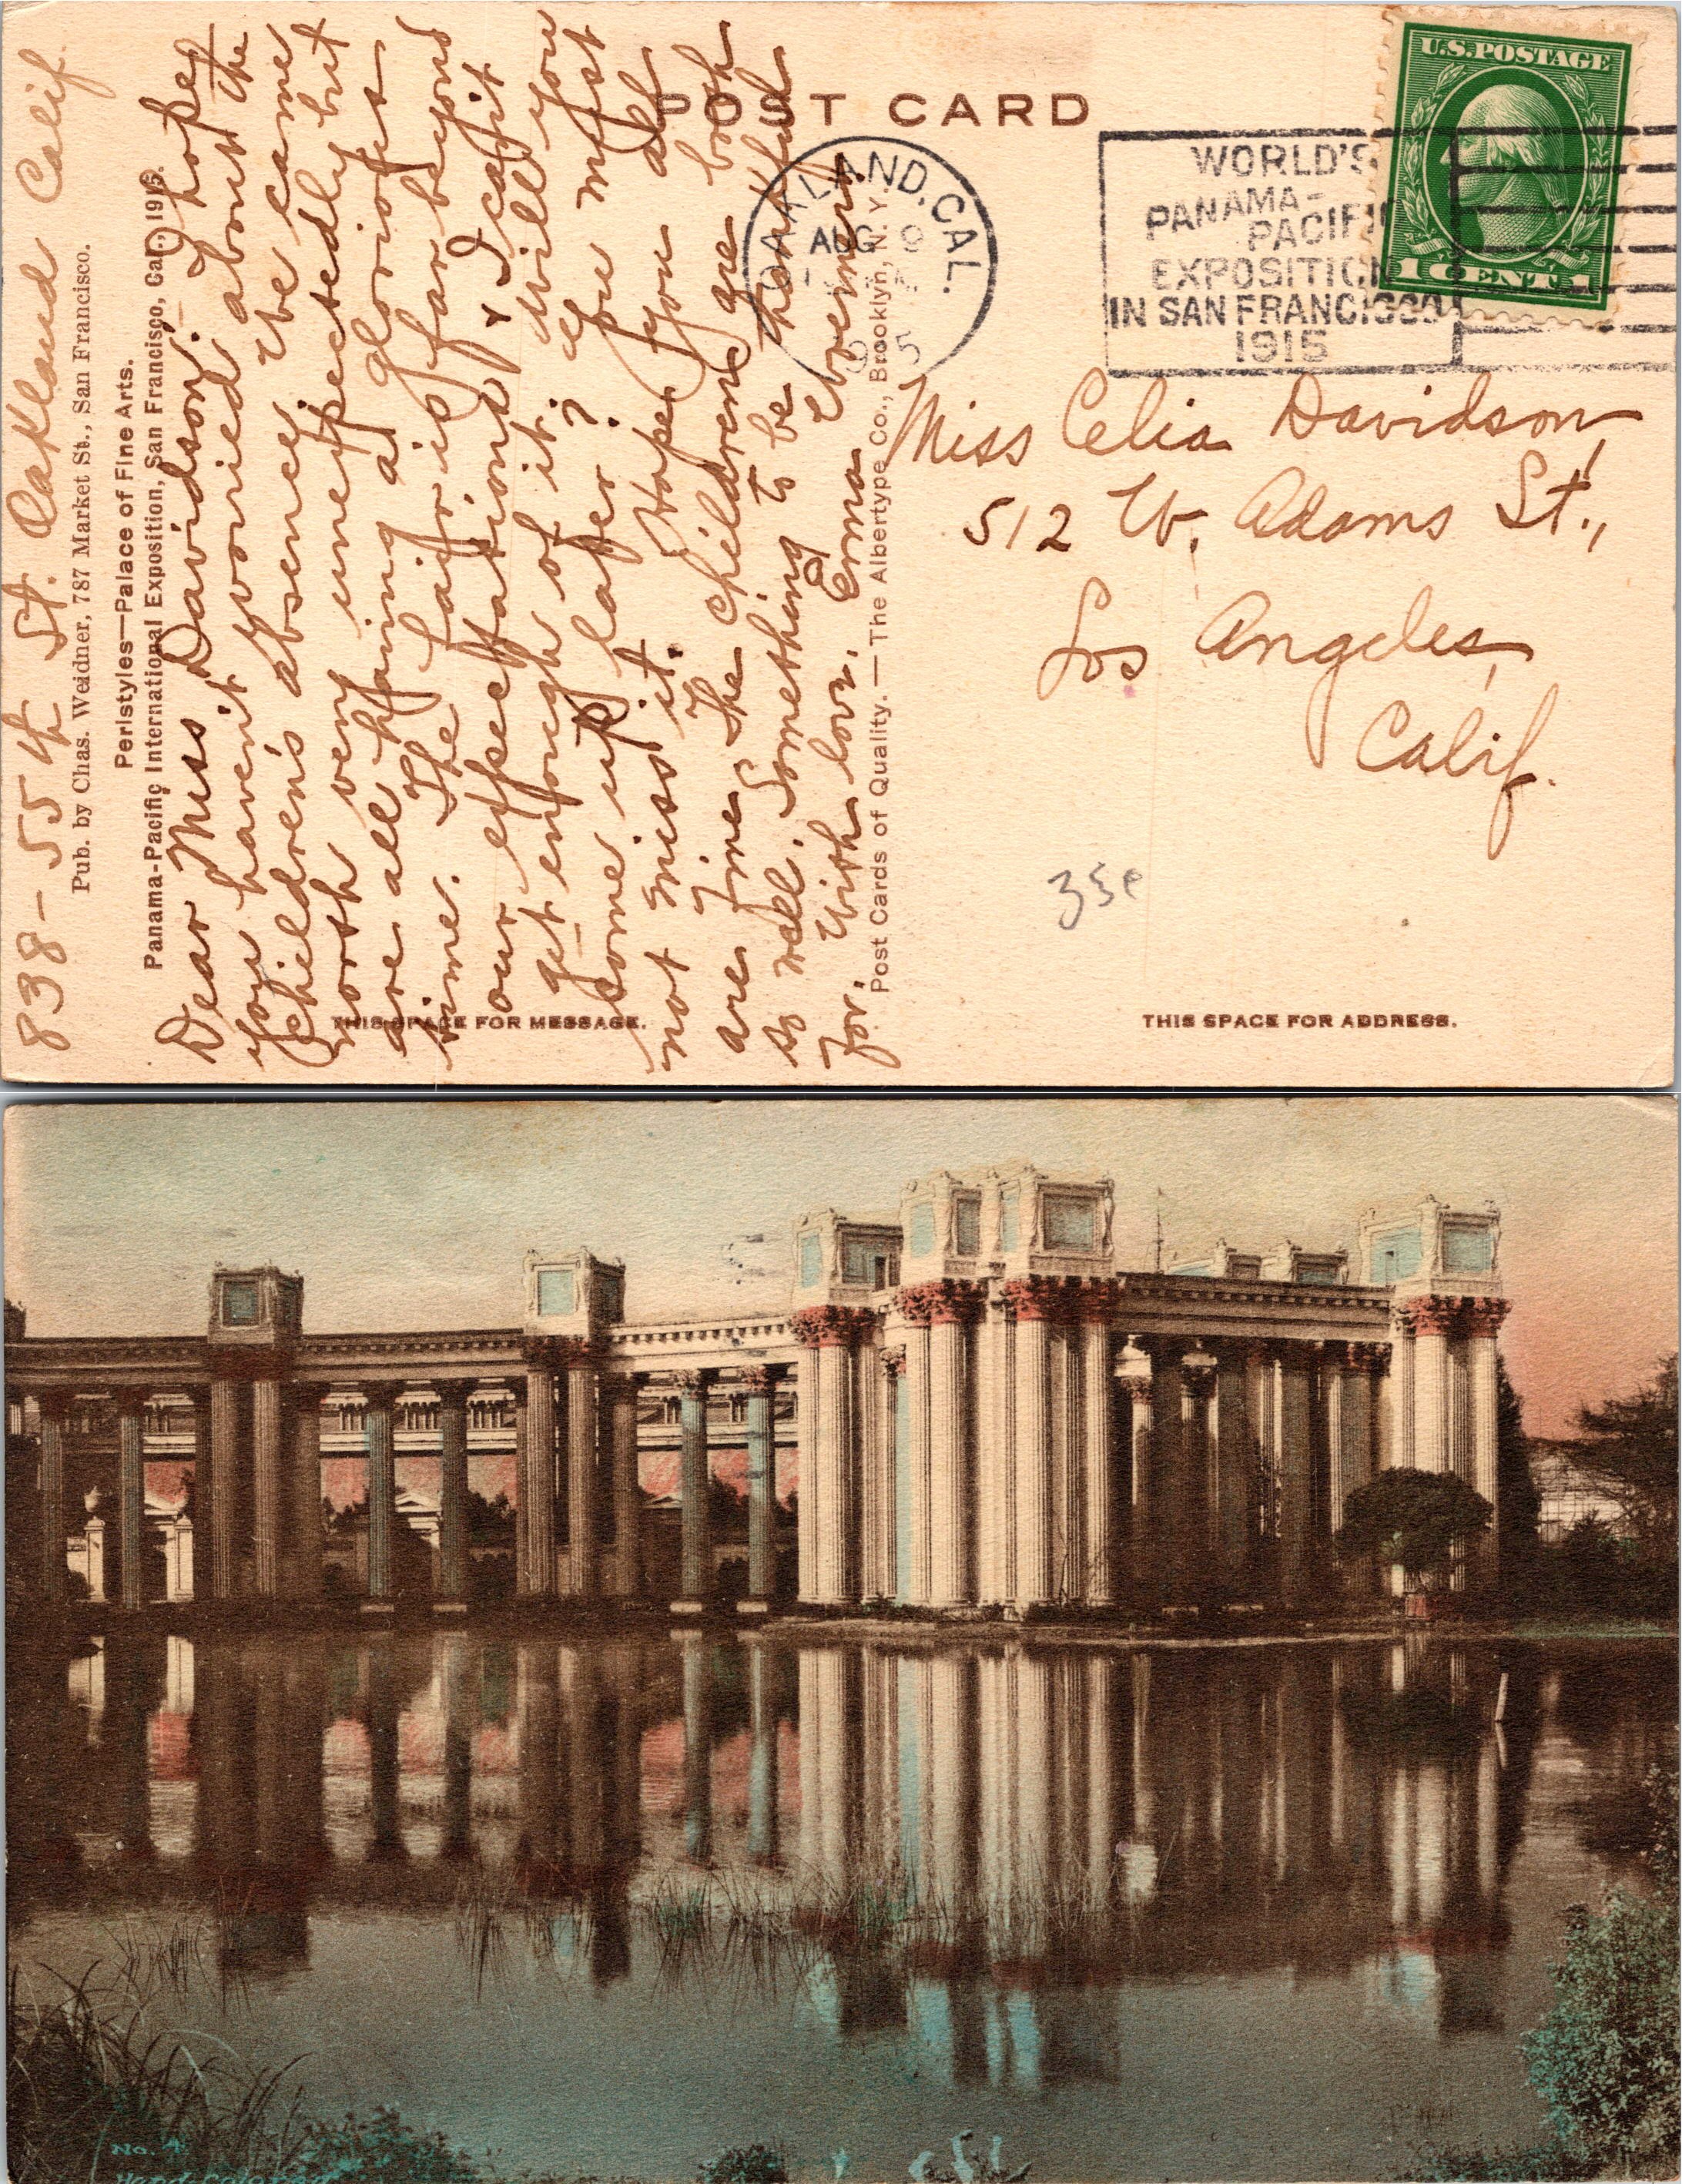 POST CARD
U.S. POSTAGE
1 CENT 1
OAKLAND, CAL.
AUG 9
WORLD'S
PANAMA-
PACIFIC
EXPOSITION
IN SAN FRANCISCO
1915
Miss Celia Davidson,
512 W. Adams St.,
Los Angeles,
Calif.
35¢
THIS SPACE FOR ADDRESS.
THIS SPACE FOR MESSAGE.
838-55th St. Oakland Calif.
Pub. by Chas. Weidner, 787 Market St., San Francisco.
Peristyles—Palace of Fine Arts.
Panama-Pacific International Exposition, San Francisco, Cal., 1915.
Dear Miss Davidson: I hope
you haven't worried about the
children's absence. We came
north very unexpectedly but
are all having a glorious
time. The fair is far beyond
our expectations & I can't
get enough of it. Will you
come up later? You must
not miss it. Hope you all
are fine. The children are both
so well. Something to be thankful
for. With love, Erma
Post Cards of Quality.—The Albertype Co., Brooklyn, N. Y.
No. 4
Hand Colored